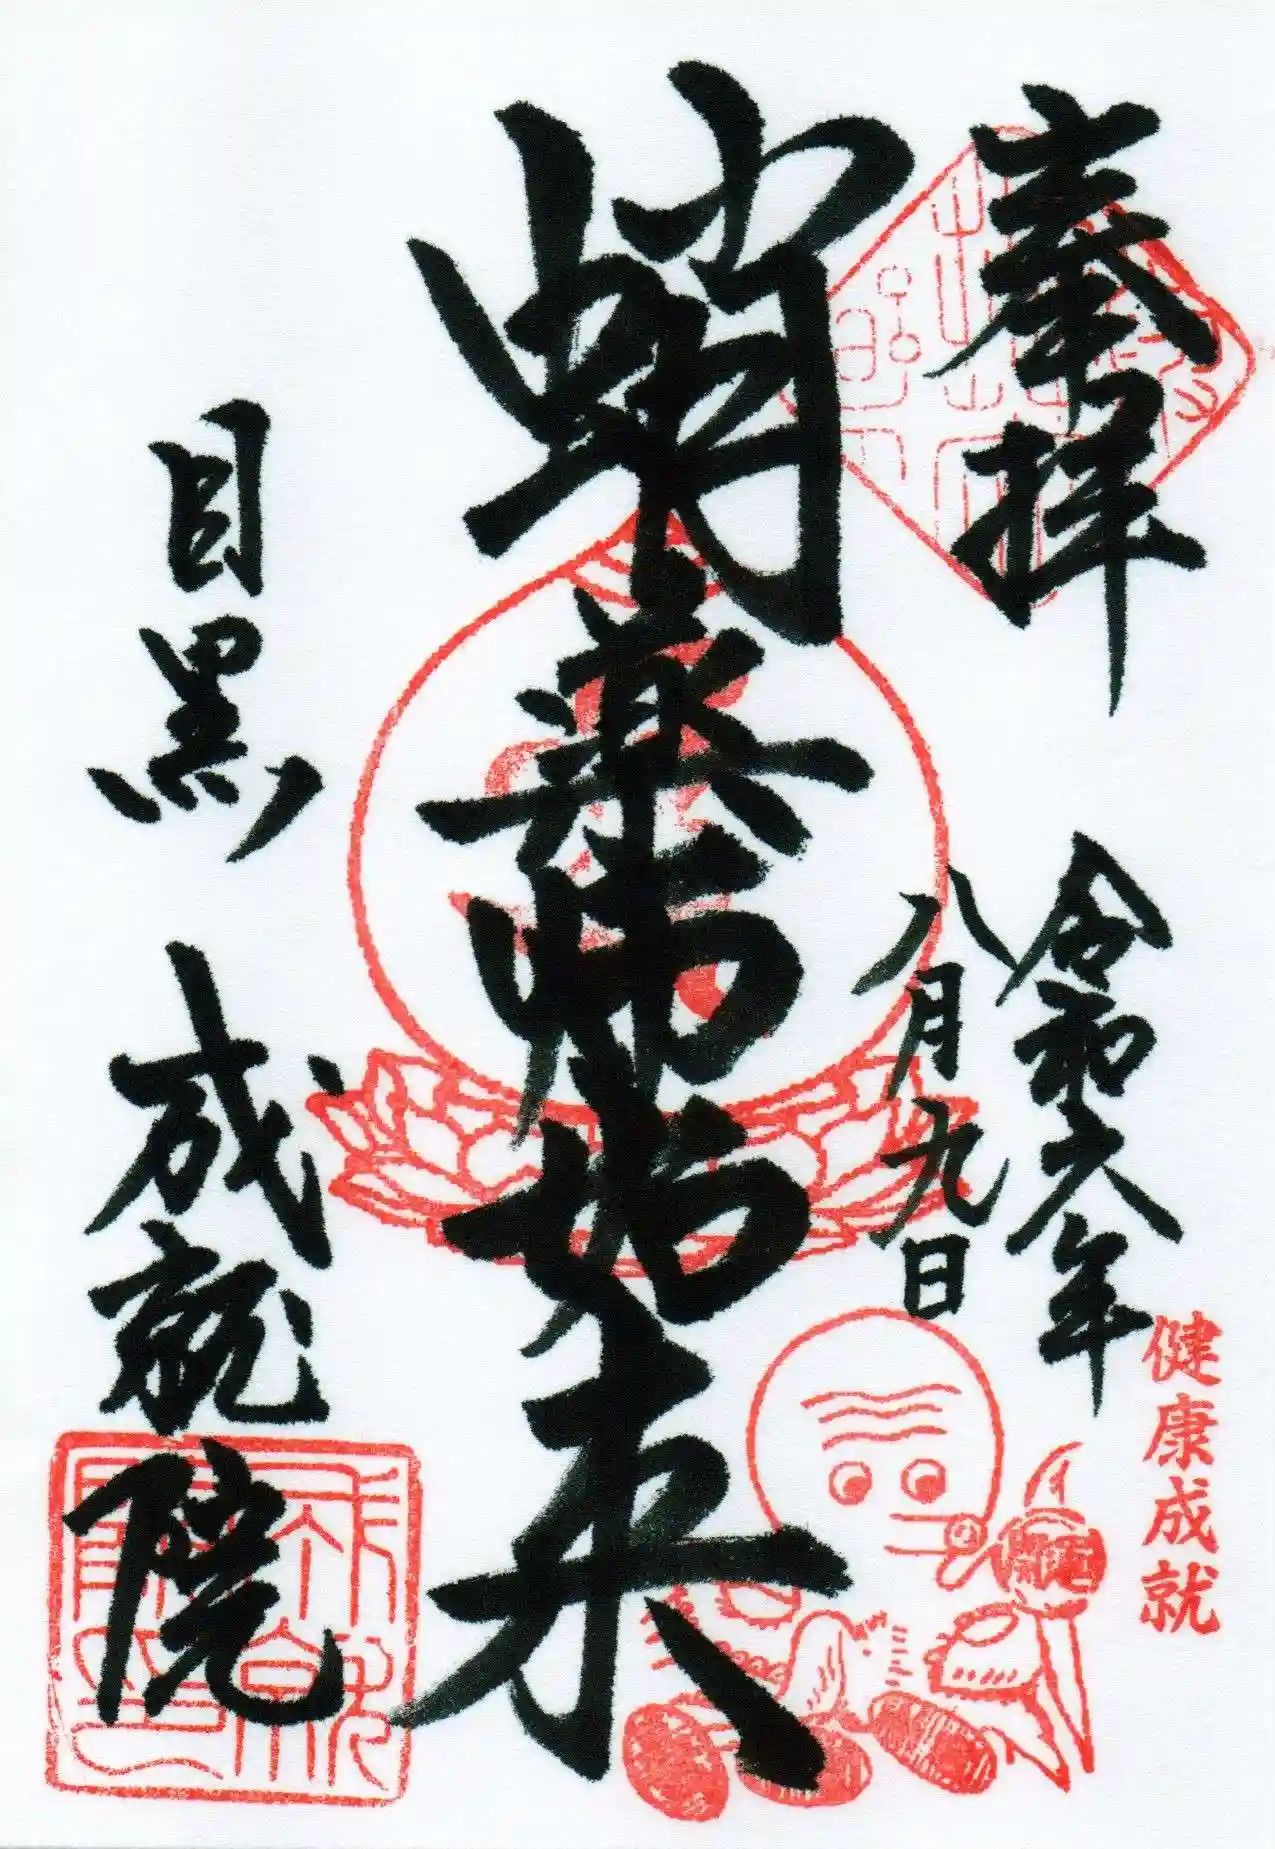 奉拝
令和六年
八月九日
蛸薬師如来
目黒 成就院
健康成就